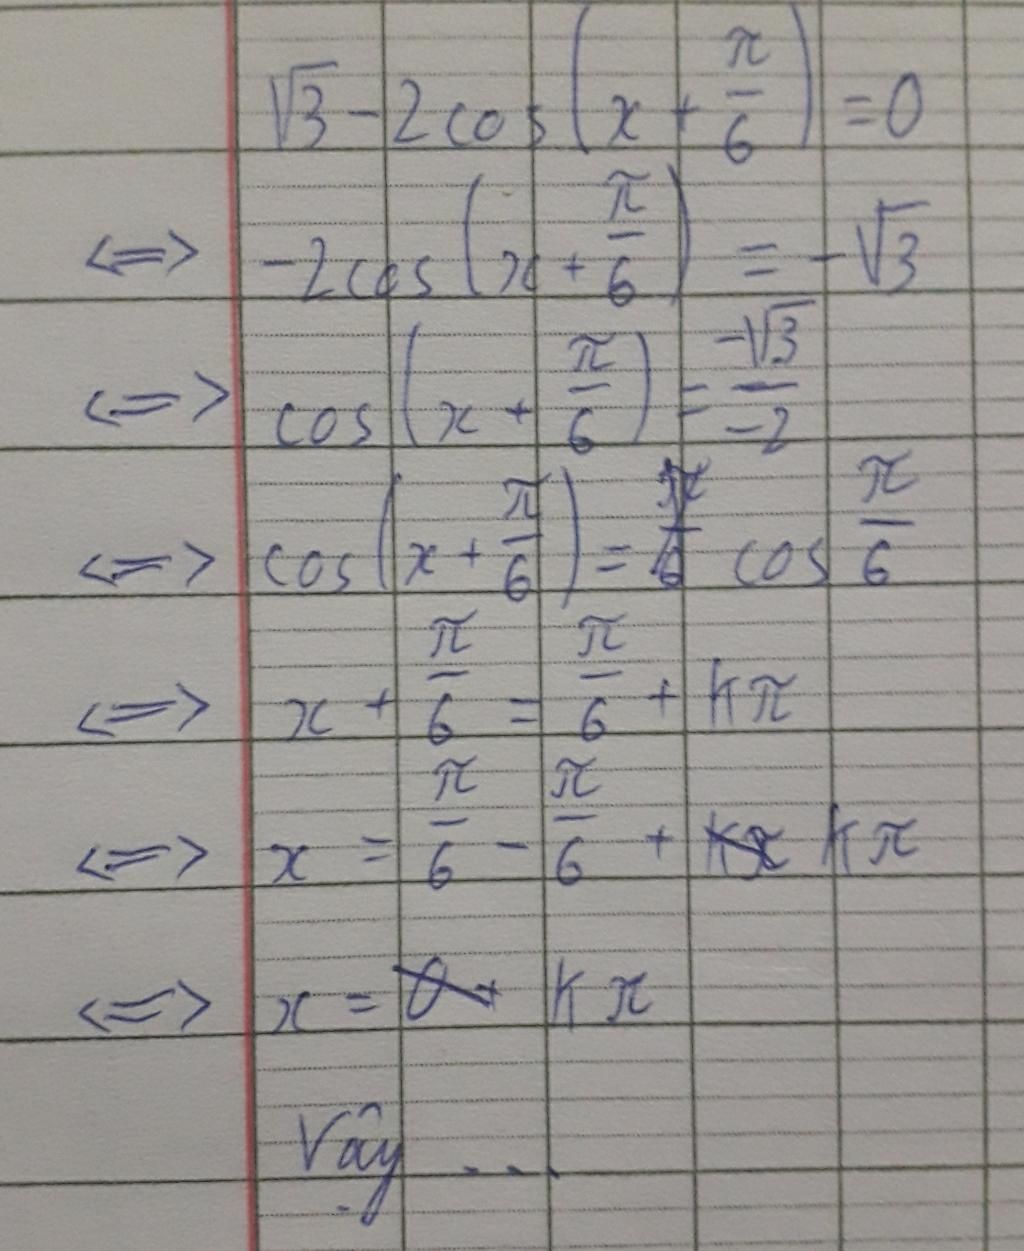 √3 - 2cos(x + π/6) = 0
<=> -2cos(x + π/6) = -√3
<=> cos(x + π/6) = -√3/-2
<=> cos(x + π/6) = cos π/6
<=> x + π/6 = π/6 + kπ
<=> x = π/6 - π/6 + kπ
<=> x = kπ
Vậy ...